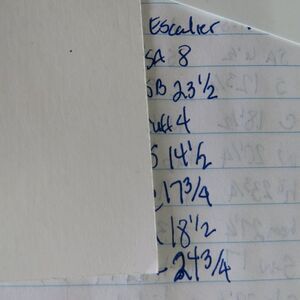 Escalier
SA 8
SB 23 1/2
uff 4
S 14 1/2
17 3/4
18 1/2
- 24 3/4